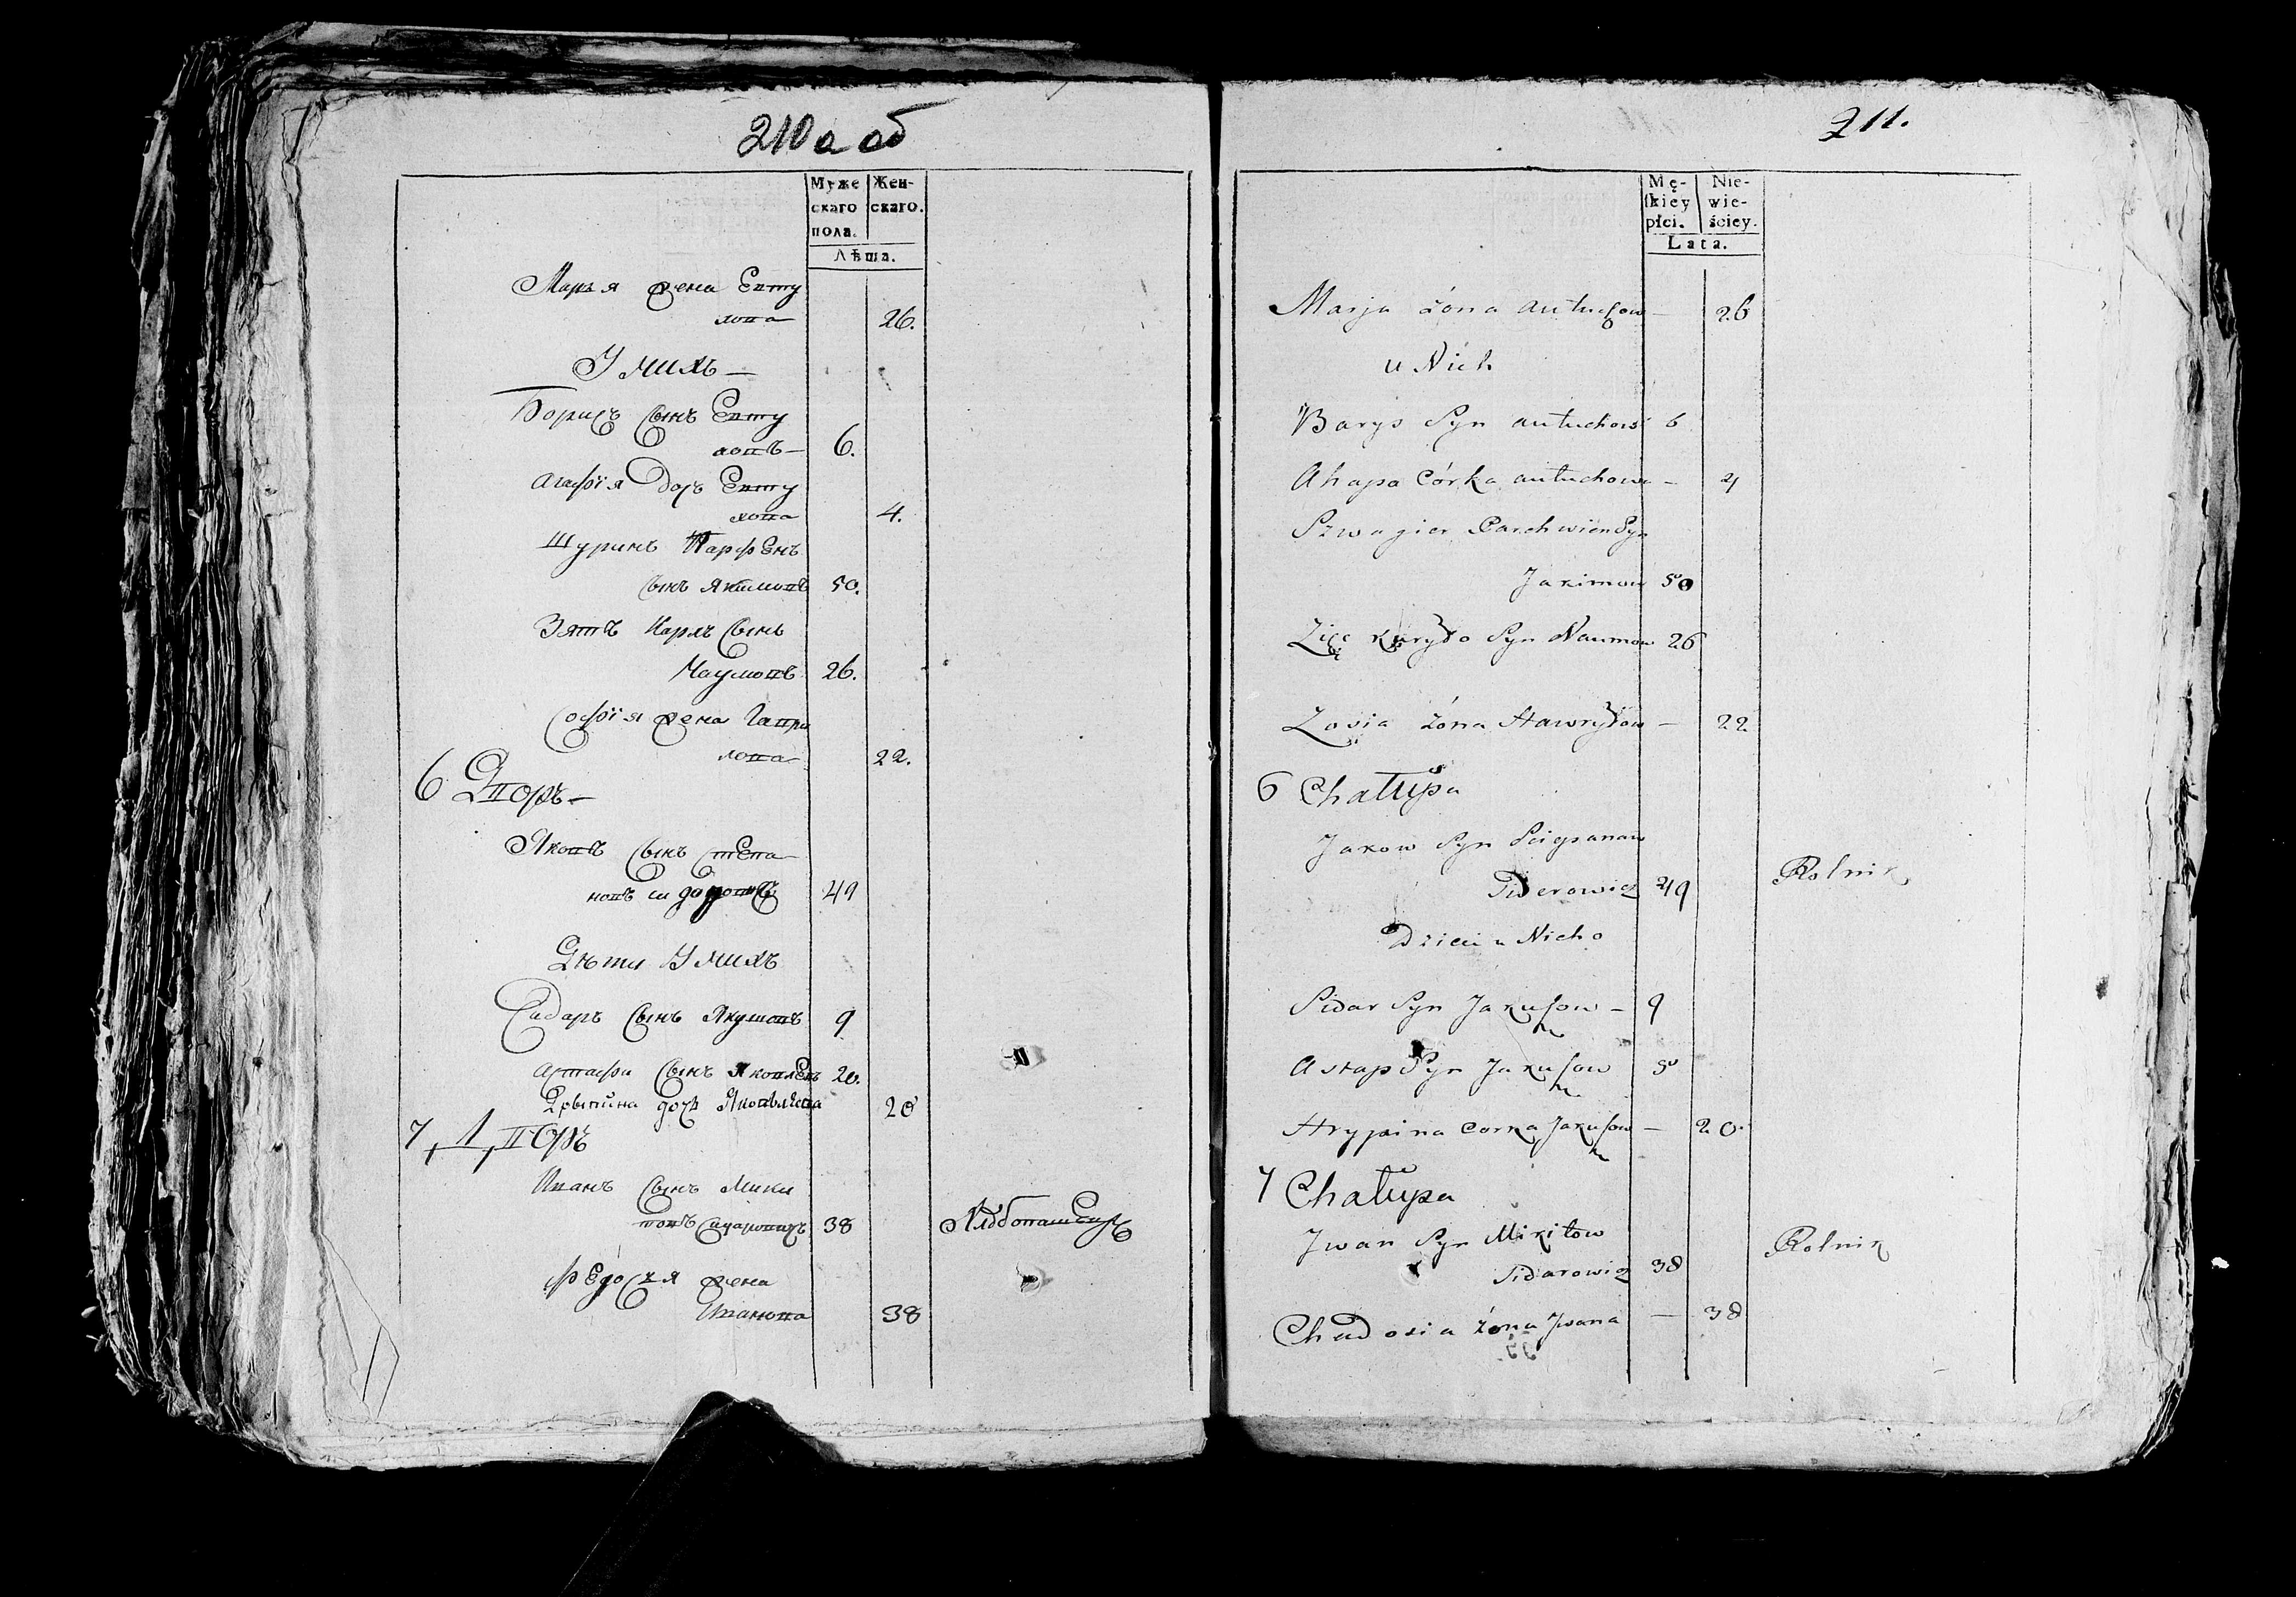 210а об
Муже
скаго
пола.
Жен-
скаго.
Лѣта.
Марья жена Евту
хова 26.
У нихъ —
Борисъ сынъ Евту
ховъ — 6.
Агафїя дочъ Евту
хова 4.
Шуринъ Парфенъ
сынъ Якимовъ 50.
Зять Карлъ сынъ
Наумовъ 26.
Софїя жена Гаври
лова 22.
6 Дворъ —
Яковъ сынъ Степа
новъ 49
Дѣти У нихъ
Сидаръ сынъ Якушовъ 9
сынъ Яковлевъ 20.
дочь Яковлева 20
7 Дворъ
Иванъ сынъ Мики
товъ Сидаровичъ 38
Хлѣбопашецъ
Федосья жена
Иванова 38
211.
Mę-
ſkiey
płci.
Nie-
wie-
ściey.
Lata.
Marja żóna Antuchow — 26
u Nich
Barys Syn Antuchow 6
Ahapa Córka Antuchowa — 4
Szwagier Parchwien Syn
Jakimow 50
Zięć Kuryło Syn Naumow 26
Zosia żóna Hawryłow — 22
6 Chałupa
Jakow Syn Sciepanow
Siderowicz 49 Rolnik
Dzieci u Nicho
Sidar Syn Jakuſow — 9
Astap Syn Jakuſow 5
Hrypina Corka Jakuſow — 20.
7 Chałupa
Jwan Syn Mikitow
Sidarowicz 38 Rolnik
Chwedosia żóna Jwana — 38